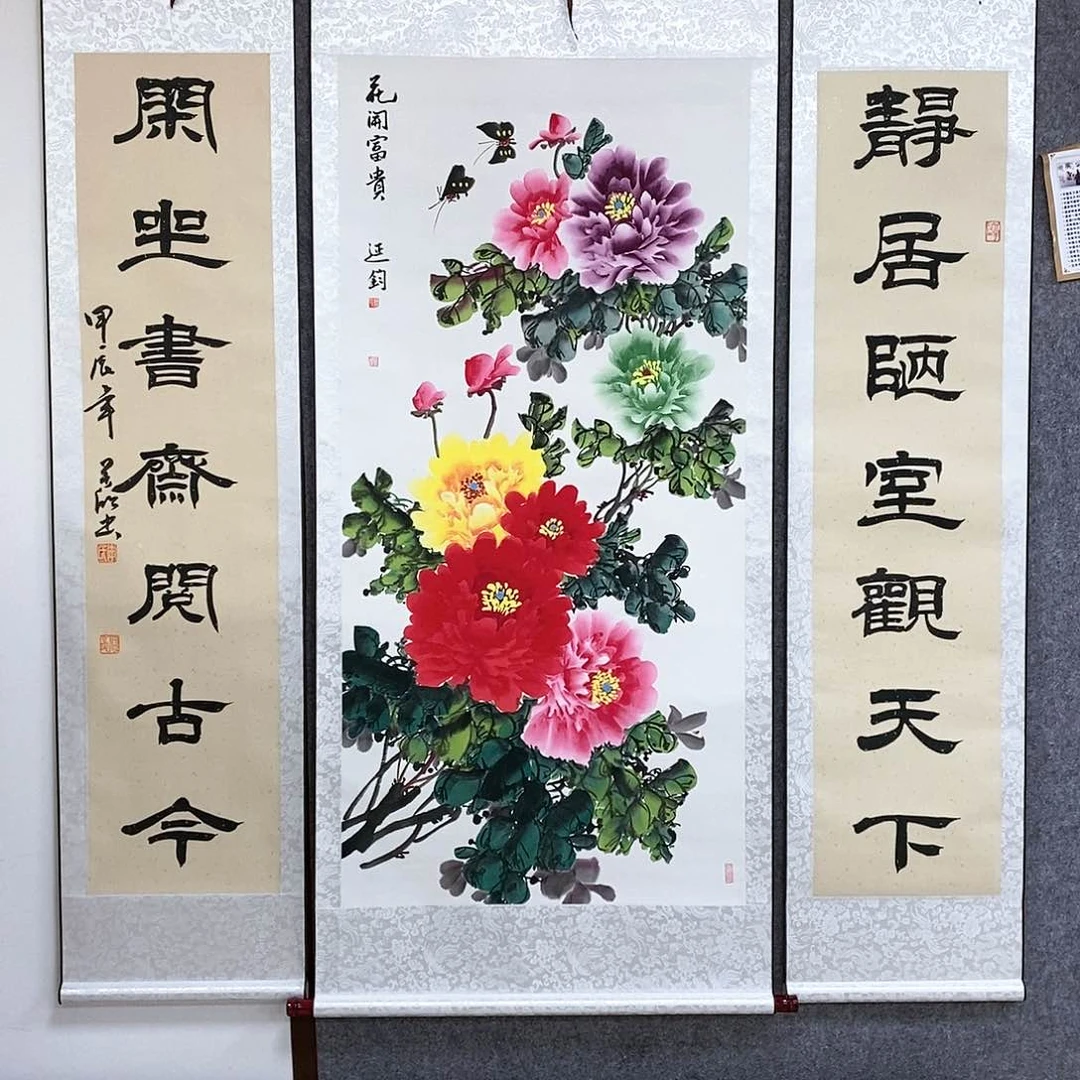 靜居陋室觀天下
花開富貴
延鈞
閑坐書齋閱古今
甲辰年